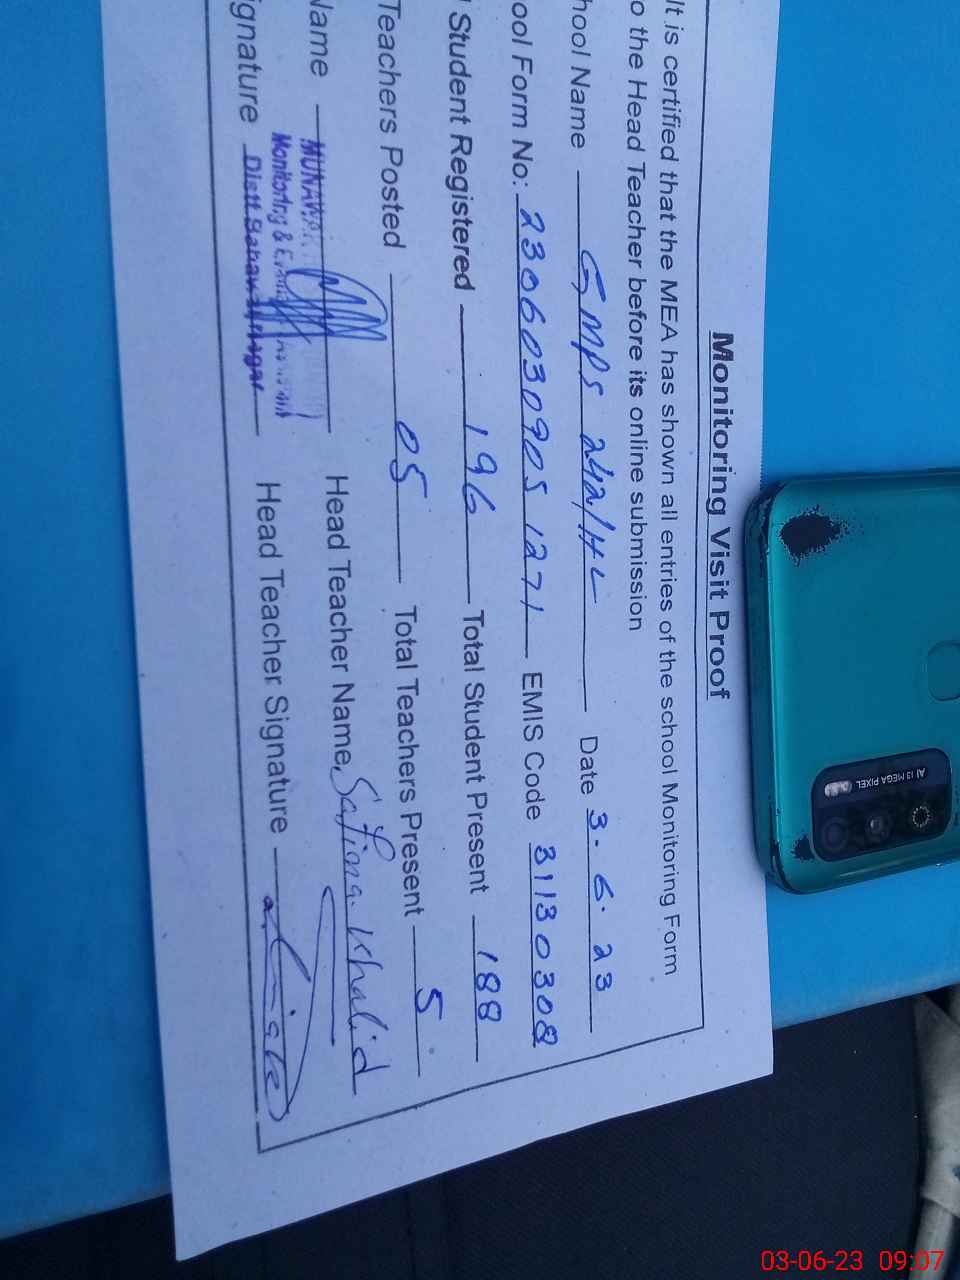 Monitoring Visit Proof
It is certified that the MEA has shown all entries of the school Monitoring Form
o the Head Teacher before its online submission
hool Name GMPS 242/HL Date 3.6.23
ool Form No: 2306030905 1271 EMIS Code 31130308
Student Registered 196 Total Student Present 188
Teachers Posted 05 Total Teachers Present 5
Name MUNAWAR Head Teacher Name, Safina Khalid
Monitoring &
ignature Distt Bahawalnagar Head Teacher Signature
AI 13 MEGA PIXEL
03-06-23 09:07